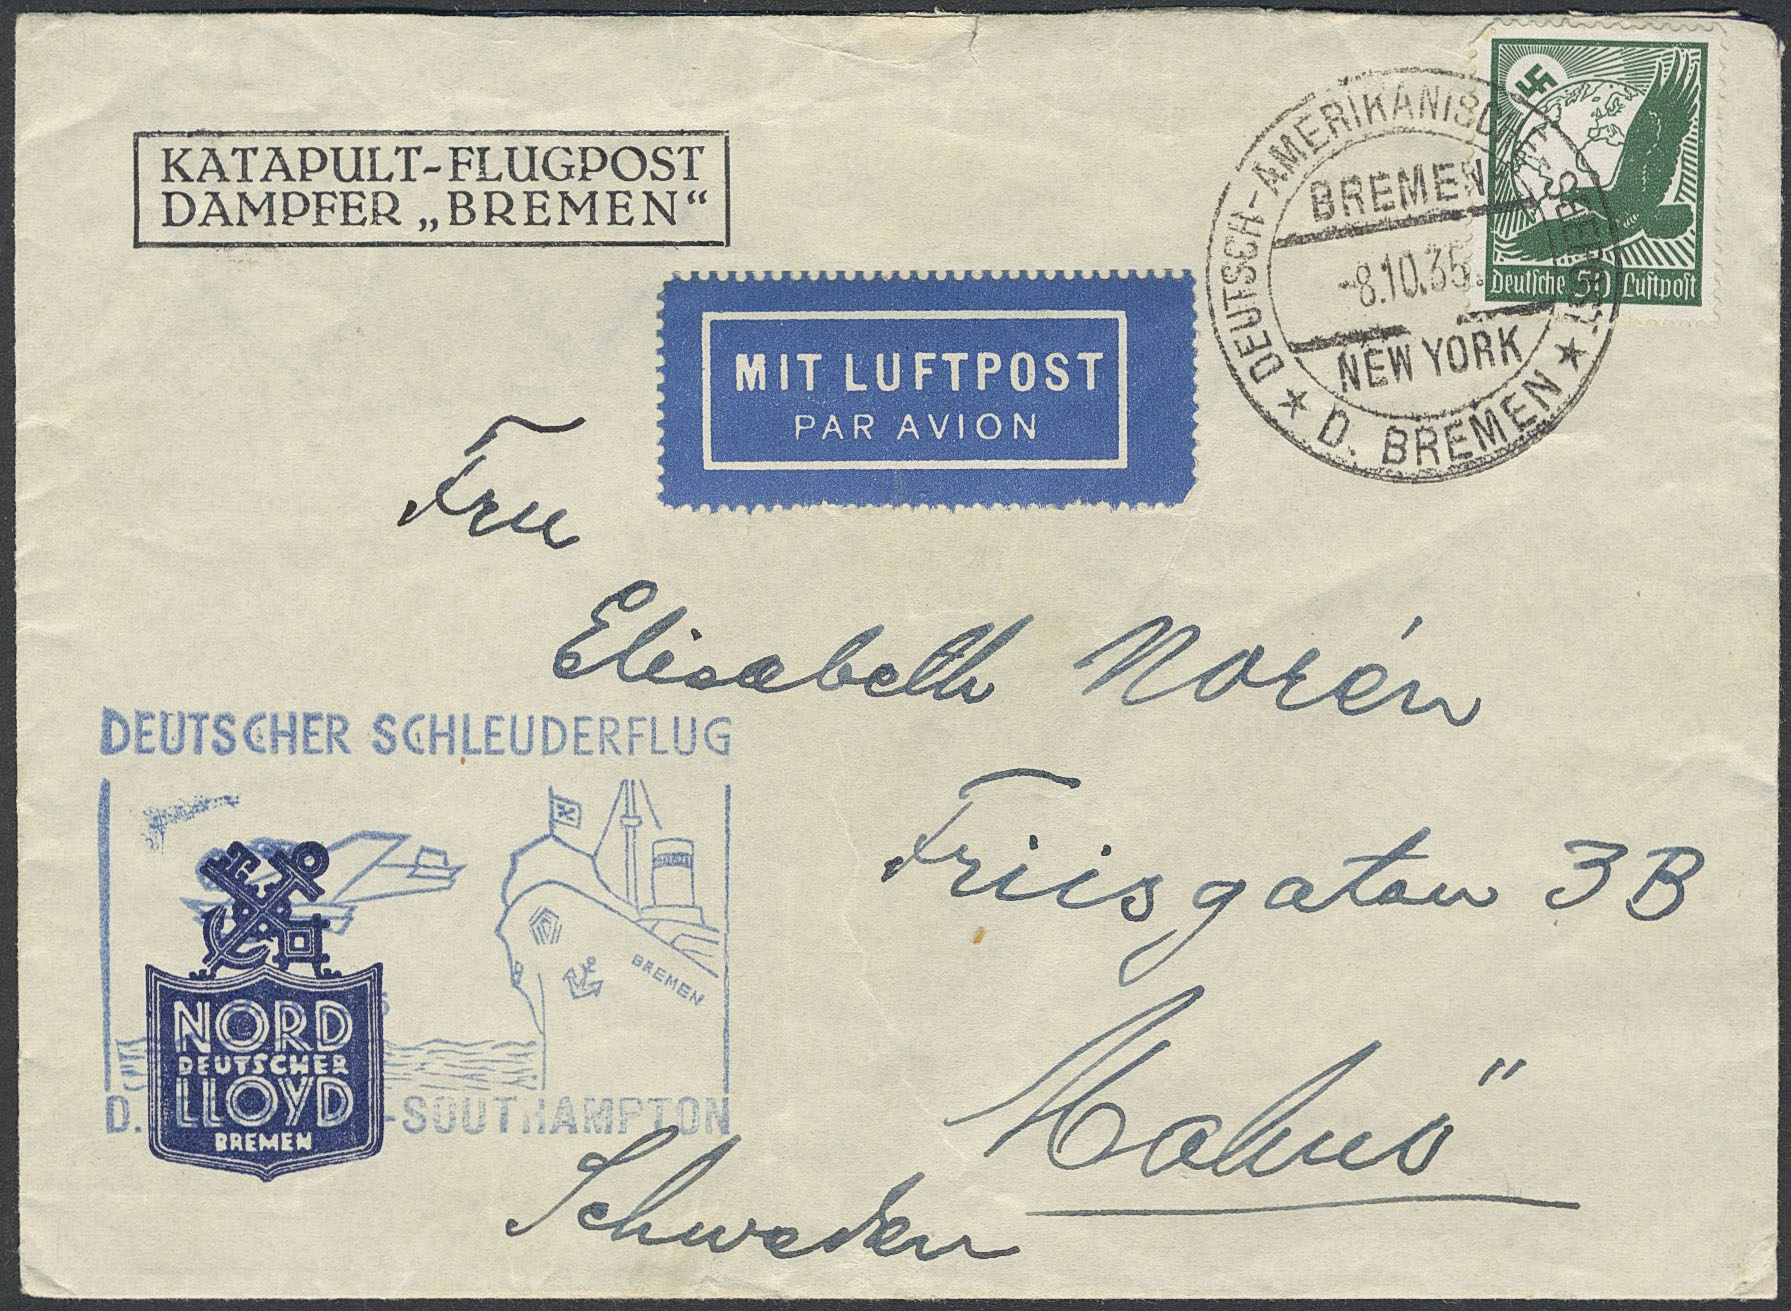 KATAPULT-FLUGPOST
DAMPFER „BREMEN“
MIT LUFTPOST
PAR AVION
DEUTSCH-AMERIKANISCHE SEEPOST
BREMEN
-8.10.35.
NEW YORK
★ D. BREMEN ★
Deutsche 50 Luftpost
Fru
Elisabeth Norén
Friisgatan 3B
Malmö
Schweden
DEUTSCHER SCHLEUDERFLUG
BREMEN
D. -SOUTHAMPTON
NORD
DEUTSCHER
LLOYD
BREMEN